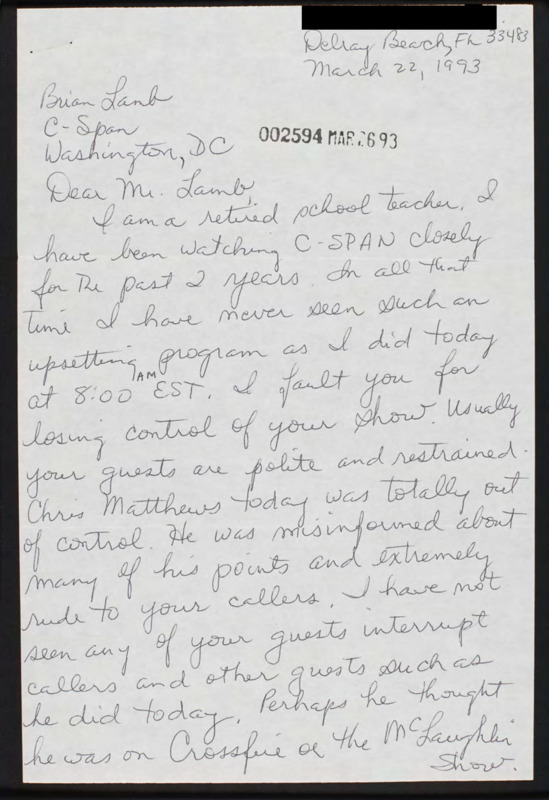 Delray Beach, Fl 33483
March 22, 1993
Brian Lamb
C-Span
Washington, DC
002594 MAR 26 93
Dear Mr. Lamb,
I am a retired school teacher. I
have been watching C-SPAN closely
for the past 2 years. In all that
time I have never seen such an
upsetting program as I did today
at 8:00 AM EST. I fault you for
losing control of your show. Usually
your guests are polite and restrained.
Chris Matthews today was totally out
of control. He was misinformed about
many of his points and extremely
rude to your callers. I have not
seen any of your guests interrupt
callers and other guests such as
he did today. Perhaps he thought
he was on Crossfire or the McLaughlin
Show.